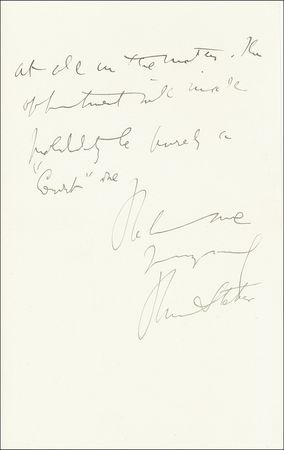 at all in the matter. The
appointment will in all
probability be purely a
"Court" one
Believe me
```
Bram Stoker